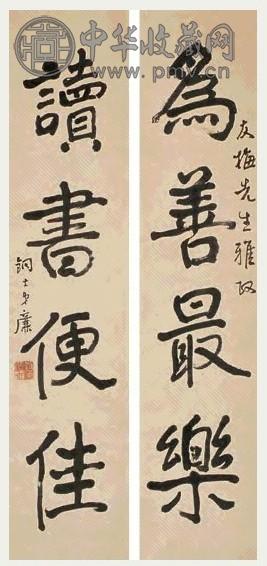 中华收藏网
www.pmv.cn
友梅先生雅政
為善最樂
讀書便佳